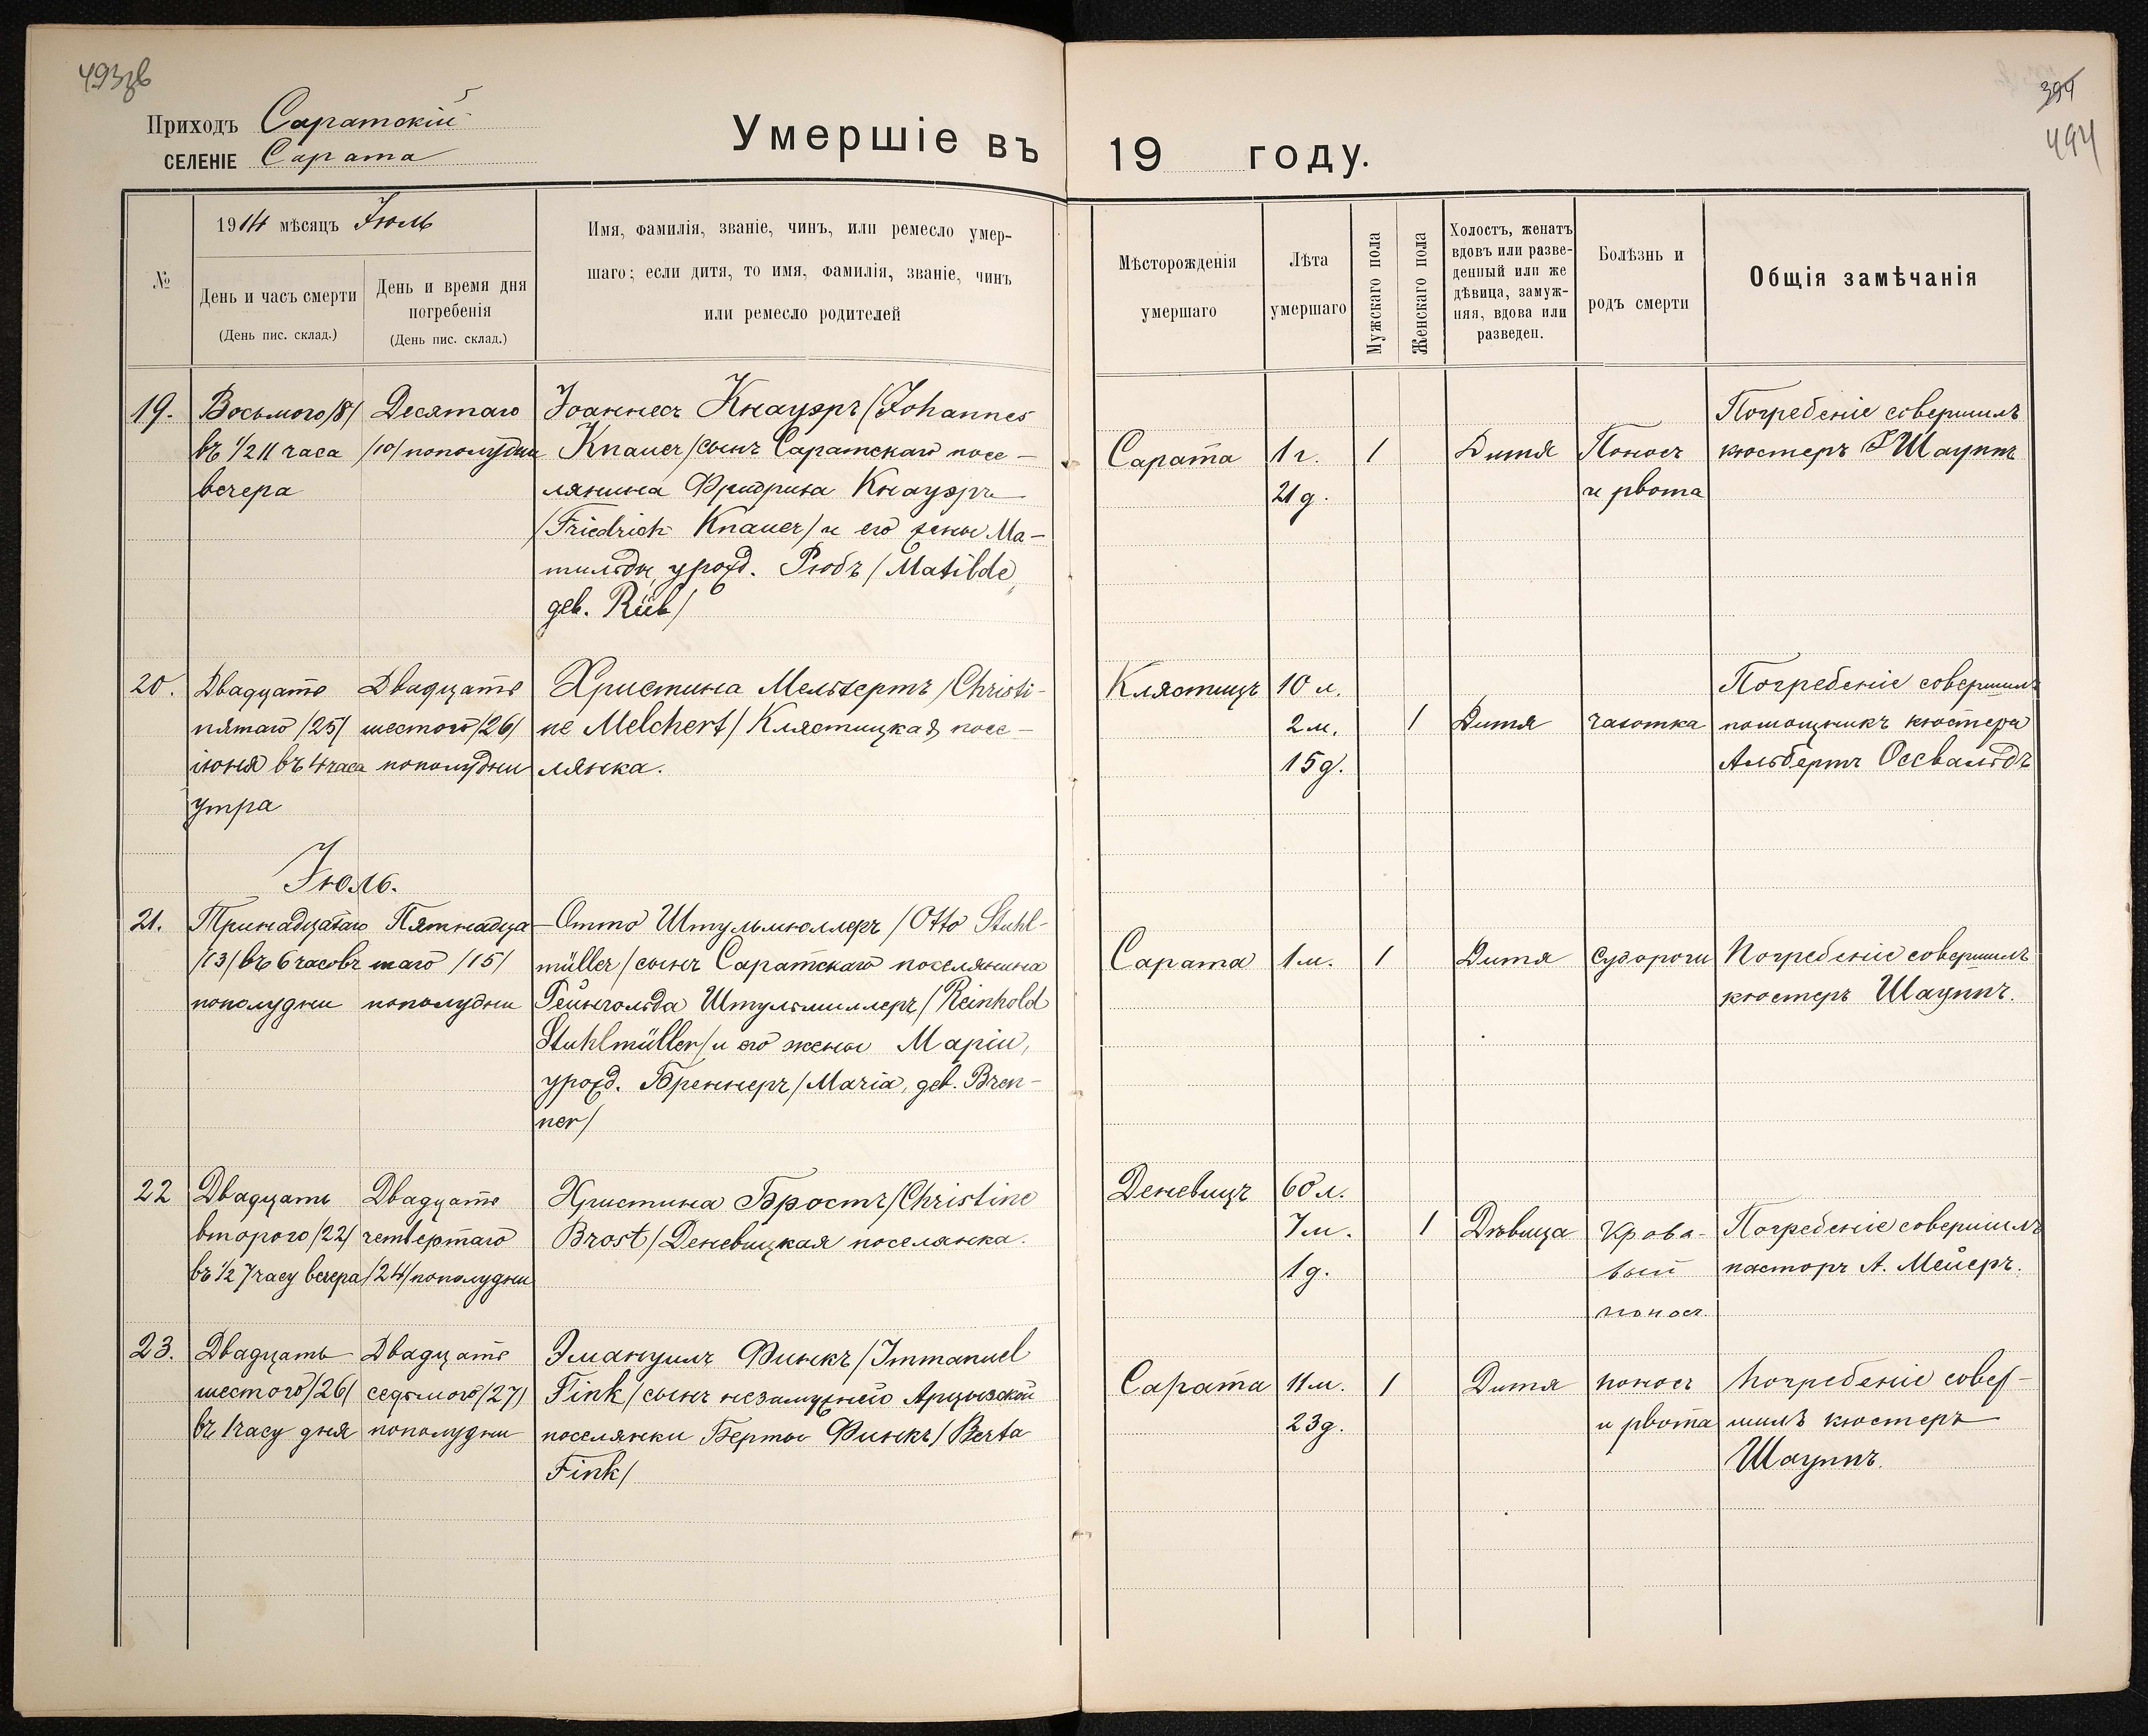 493зв
Приходъ Саратскій
СЕЛЕНІЕ Сарата
Умершіе въ 19 году.
394
494
№
1914 мѣсяцъ Іюль
День и часъ смерти
(День пис. склад.)
День и время дня
погребенія
(День пис. склад.)
Имя, фамилія, званіе, чинъ, или ремесло умер-
шаго; если дитя, то имя, фамилія, званіе, чинъ
или ремесло родителей
Мѣсторожденія
умершаго
Лѣта
умершаго
Мужскаго пола
Женскаго пола
Холостъ, женатъ
вдовъ или разве-
денный или же
дѣвица, замуж-
няя, вдова или
разведен.
Болѣзнь и
родъ смерти
Общія замѣчанія
19.
Восьмого /8/
въ 1/2 11 часа
вечера
Десятаго
/10/ пополудни
Іоаннесъ Кнауэръ /Johannes
Knauer/ сынъ Саратскаго посе-
лянина Фридриха Кнауэръ
/Friedrich Knauer/ и его жены Ма-
тильды, урожд. Рюбъ /Matilde,
geb. Rüb/
Сарата
1 г.
21 д.
1
Дитя
Поносъ
и рвота
Погребеніе совершилъ
кюстеръ Г Шауппъ
20.
Двадцать
пятаго /25/
іюня въ 4 часа
утра
Двадцать
шестого /26/
пополудни
Христина Мельхертъ /Christi-
ne Melchert/ Клястицкая посе-
лянка.
Клястицъ
10 л.
2 м.
15 д.
1
Дитя
чахотка
Погребеніе совершилъ
помощникъ кюстера
Альбертъ Оссвальдъ
Іюль.
21.
Тринадцатаго
/13/ въ 6 часовъ
пополудни
Пятнадца-
таго /15/
пополудни
Отто Штульмюллеръ /Otto Stuhl-
müller/ сынъ Саратскаго поселянина
Рейнгольда Штульмиллеръ /Reinhold
Stuhlmüller/ и его жены Маріи,
урожд. Бреннеръ /Maria, geb. Bren-
ner/
Сарата
1 м.
1
Дитя
Судороги
Погребеніе совершилъ
кюстеръ Шауппъ.
22
Двадцать
второго /22/
въ 1/2 7 часу вечера
Двадцать
четвертаго
/24/ пополудни
Христина Бростъ /Christine
Brost/ Деневицкая поселянка.
Деневицъ
60 л.
7 м.
1 д.
1
Дѣвица
Крова-
вый
поносъ.
Погребеніе совершилъ
пасторъ А. Мейеръ.
23.
Двадцать
шестого /26/
въ 1 часу дня
Двадцать
седьмого /27/
пополудни
Эмануилъ Финкъ /Immanuel
Fink/ сынъ незамужней Арцызской
поселянки Берты Финкъ /Berta
Fink/
Сарата
11 м.
23 д.
1
Дитя
поносъ
и рвота
погребеніе совер-
шилъ кюстеръ
Шауппъ.